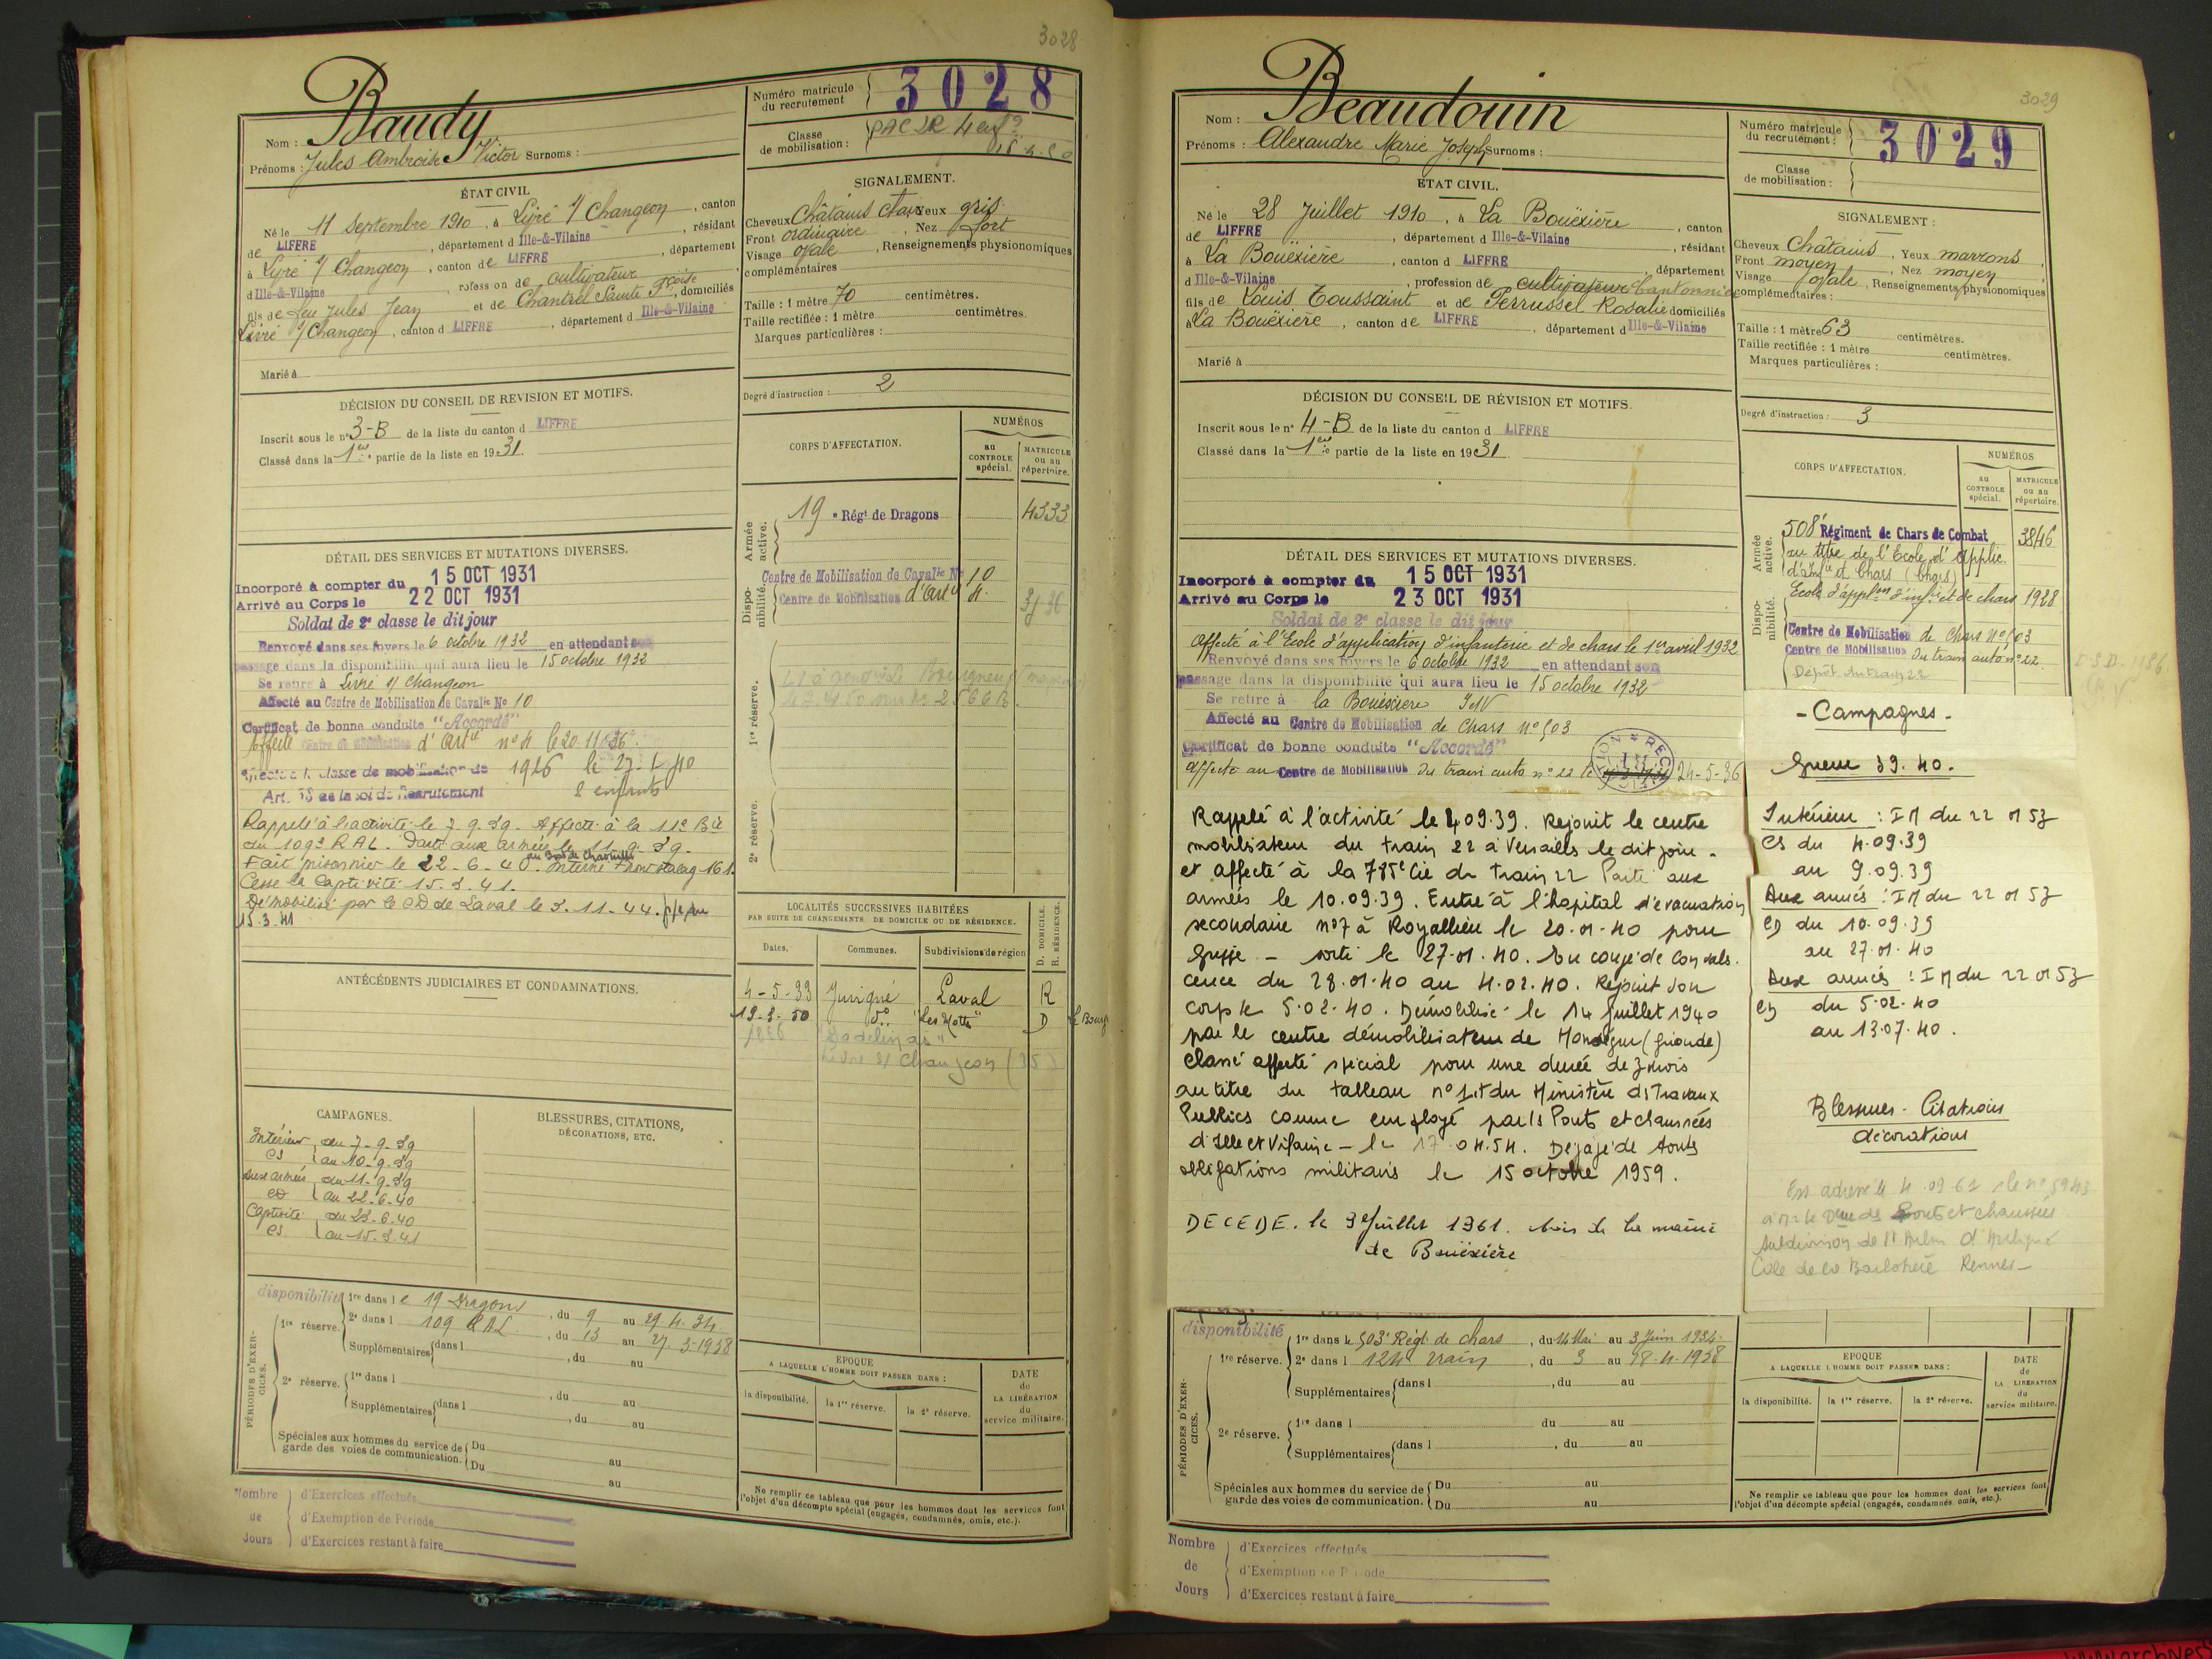 3028
Nom : Baudy
Prénoms : Jules Ambroise Victor Surnoms :
Numéro matricule du recrutement 3028
Classe de mobilisation :
ÉTAT CIVIL
Né le 11 Septembre 1910, à Livré s/ Changeon, canton
de LIFFRE, département d Ille-&-Vilaine, résidant
à Livré s/ Changeon, canton de LIFFRE, département
d Ille-&-Vilaine, profession de cultivateur
fils de feu Jules Jean et de Chantrel Sainte Fçoise, domiciliés
Livré s/ Changeon, canton d LIFFRE, département d Ille-&-Vilaine
Marié à
SIGNALEMENT.
Cheveux Châtains clair Yeux gris
Front ordinaire, Nez fort
Visage ovale, Renseignements physionomiques
complémentaires
Taille : 1 mètre 70 centimètres.
Taille rectifiée : 1 mètre centimètres.
Marques particulières :
Degré d'instruction : 2
DÉCISION DU CONSEIL DE REVISION ET MOTIFS.
Inscrit sous le n° 3-B de la liste du canton d LIFFRE
Classé dans la 1ere partie de la liste en 1931.
CORPS D'AFFECTATION.
NUMÉROS
au CONTROLE spécial.
MATRICULE ou au répertoire.
Armée active.
19e Régt de Dragons 4333
Disponibilité.
Centre de Mobilisation de Cavalie No 10
Centre de Mobilisation d'Artie 4.
1re réserve.
2e réserve.
DÉTAIL DES SERVICES ET MUTATIONS DIVERSES.
Incorporé à compter du 15 OCT 1931
Arrivé au Corps le 22 OCT 1931
Soldat de 2e classe le dit jour
Renvoyé dans ses foyers le 6 octobre 1932 en attendant son
passage dans la disponibilité qui aura lieu le 15 octobre 1932
Se retire à Livré s/ Changeon
Affecté au Centre de Mobilisation de Cavalie No 10
Certificat de bonne conduite "Accordé"
Affecté Centre de Mobilisation d'Artie n° 4 le 20.11.36.
classe de mobilisation de 1926
Art. 58 de la loi de Recrutement 2 enfants
Rappelé à l'activité le 7.9.39. Affecté à la 11e Bie
du 109e RAL. Parti aux armées le 11.9.39.
Fait prisonnier le 22.6.40. Interné Front Stalag 161.
Cesse la captivité 15.3.41.
Démobilisé par le CD de Laval le 3.11.44.
15.3.41
ANTÉCÉDENTS JUDICIAIRES ET CONDAMNATIONS.
LOCALITÉS SUCCESSIVES HABITÉES
PAR SUITE DE CHANGEMENTS DE DOMICILE OU DE RÉSIDENCE.
Dates. Communes. Subdivisions de région D. DOMICILE. R. RÉSIDENCE.
4-5-33 Juvigné Laval R
19-3-50 do "Les Motts" D le Bourg
CAMPAGNES.
Intérieur du 7-9-39
CS au 10-9-39
aux armées du 11-9-39
CD au 22-6-40
Captivité du 23-6-40
CS au 15-3-41
BLESSURES, CITATIONS,
DÉCORATIONS, ETC.
PÉRIODES D'EXERCICES.
disponibilité 1re dans le 19 Dragons, du 9 au 29.4.34
1re réserve. 2e dans l 109 RAL, du 13 au 27.3-1938
Supplémentaires dans l, du au
2e réserve. 1re dans l, du au
Supplémentaires dans l, du au
Spéciales aux hommes du service de garde des voies de communication. Du au
Du au
EPOQUE
A LAQUELLE L'HOMME DOIT PASSER DANS :
la disponibilité. la 1re réserve. la 2e réserve.
DATE de LA LIBÉRATION du service militaire.
Ne remplir ce tableau que pour les hommes dont les services font
l'objet d'un décompte spécial (engagés, condamnés, omis, etc.).
Nombre de Jours
d'Exercices effectués
d'Exemption de Période
d'Exercices restant à faire
3029
Nom : Beaudouin
Prénoms : Alexandre Marie Joseph Surnoms :
Numéro matricule du recrutement : 3029
Classe de mobilisation :
ÉTAT CIVIL.
Né le 28 Juillet 1910, à La Bouëxière, canton
de LIFFRE, département d Ille-&-Vilaine, résidant
à La Bouëxière, canton d LIFFRE, département
d Ille-&-Vilaine, profession de cultivateur Cantonnier
fils de Louis Toussaint et de Perrussel Rosalie domiciliés
à La Bouëxière, canton de LIFFRE, département d Ille-&-Vilaine
Marié à
SIGNALEMENT :
Cheveux Châtains, Yeux marrons,
Front moyen, Nez moyen,
Visage ovale, Renseignements physionomiques
complémentaires :
Taille : 1 mètre 63 centimètres.
Taille rectifiée : 1 mètre centimètres.
Marques particulières :
Degré d'instruction : 3
DÉCISION DU CONSEIL DE RÉVISION ET MOTIFS.
Inscrit sous le n° 4-B de la liste du canton d LIFFRE
Classé dans la 1ere partie de la liste en 1931.
CORPS D'AFFECTATION.
NUMÉROS
au CONTROLE spécial.
MATRICULE ou au répertoire.
Armée active.
508e Régiment de Chars de Combat 3846
au titre de l'Ecole d'Applic.
d'Infie et Chars (Chars)
Ecole d'applon d'infie et de chars 1928
Disponibilité.
Centre de Mobilisation de Chars n° 503
Centre de Mobilisation du train auto n° 22.
Dépôt du train 22
DÉTAIL DES SERVICES ET MUTATIONS DIVERSES.
Incorporé à compter du 15 OCT 1931
Arrivé au Corps le 23 OCT 1931
Soldat de 2e classe le dit jour
Affecté à l'Ecole d'application d'infanterie et de chars le 1er avril 1932
Renvoyé dans ses foyers le 6 octobre 1932 en attendant son
passage dans la disponibilité qui aura lieu le 15 octobre 1932
Se retire à la Bouëxière I&V
Affecté au Centre de Mobilisation de Chars n° 503
Certificat de bonne conduite "Accordé"
Affecté au Centre de Mobilisation du train auto n° 22 le 24-5-36
Rappelé à l'activité le 4.09.39. Rejoint le centre
mobilisateur du train 22 à Versailles le dit jour.
et affecté à la 785e Cie du Train 22 Parti aux
armées le 10.09.39. Entré à l'hôpital d'évacuation
secondaire n°7 à Royallieu le 20.01.40 pour
grippe - sorti le 27.01.40. En congé de convales.
cence du 28.01.40 au 4.02.40. Rejoint son
corps le 5.02.40. Démobilisé le 14 Juillet 1940
par le centre démobilisateur de Monségur (Gironde)
Classé affecté spécial pour une durée de 3 mois
au titre du tableau n° 1 du Ministère ds Travaux
Publics comme employé par ls Ponts et chaussées
d'Ille et Vilaine - le 17.04.54. Dégagé de toutes
obligations militaires le 15 octobre 1959.
DECEDE. le 9 Juillet 1961. Avis de la mairie
de Bouëxière
- Campagnes -
Guerre 39.40.
Intérieur : IM du 22 01 53
CS du 4.09.39
au 9.09.39
Aux armées : IM du 22 01 53
CD du 10.09.39
au 27.01.40
Aux armées : IM du 22 01 53
CD du 5.02.40
au 13.07.40.
Blessures - Citations
décorations
PÉRIODES D'EXERCICES.
disponibilité 1re dans le 503e Régt de chars, du 14 Mai au 3 Juin 1934.
1re réserve. 2e dans l 124 train, du 3 au 18.4.1938
Supplémentaires dans l, du au
2e réserve. 1re dans l du au
Supplémentaires dans l, du au
Spéciales aux hommes du service de garde des voies de communication. Du au
Du au
EPOQUE
A LAQUELLE L'HOMME DOIT PASSER DANS :
la disponibilité. la 1re réserve. la 2e réserve.
DATE de LA LIBERATION du service militaire.
Ne remplir ce tableau que pour les hommes dont les services font
l'objet d'un décompte spécial (engagés, condamnés omis, etc.).
Nombre de Jours
d'Exercices effectués
d'Exemption de Période
d'Exercices restant à faire